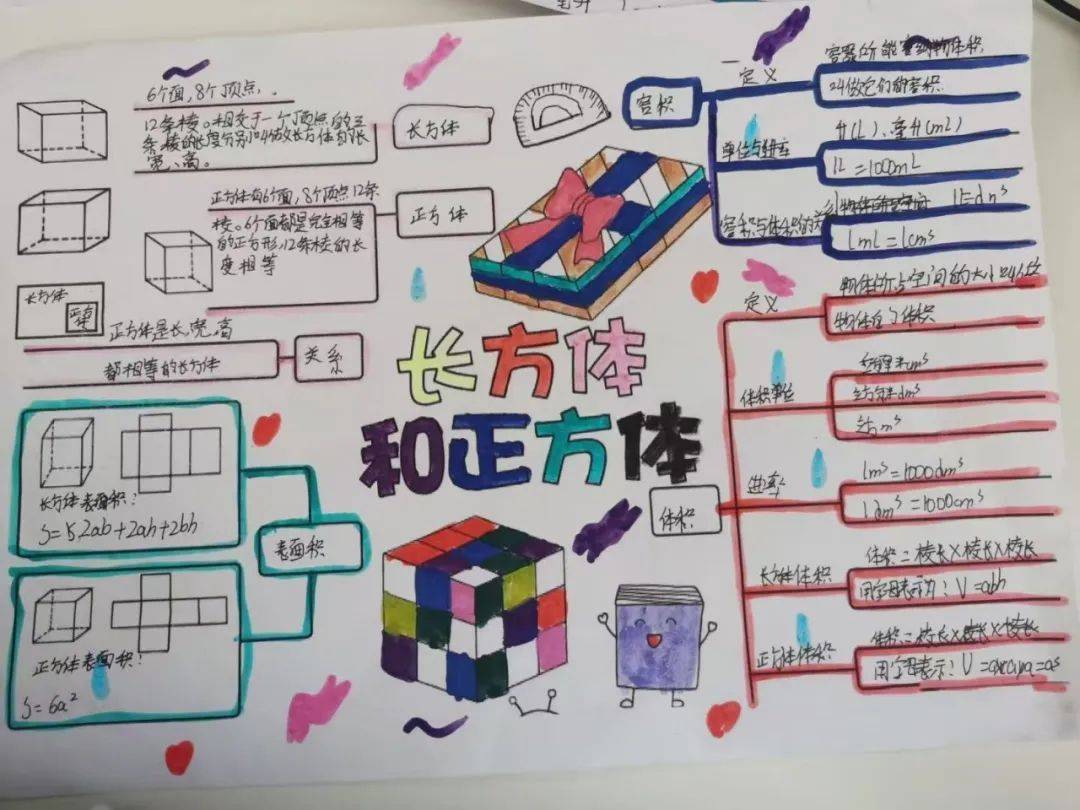 6个面，8个顶点．
12条棱。相交于一个顶点的三
条棱的长度分别叫做长方体的长
宽、高。
长方体
正方体有6个面，8个顶点12条
棱。6个面都是完全相等
的正方形，12条棱的长
度相等
正方体
长方体
正方体
正方体是长、宽、高
都相等的长方体
关系
长方体表面积：
S=5,2ab+2ah+2bh
正方体表面积：
S=6a²
表面积
长方体
和正方体
容积
定义
容器所能
物体积
叫做它们的容积
单位与进率
升(L)、毫升(mL)
1L=1000mL
容积与体积的
1L=dm³
1mL=1cm³
体积
定义
物体所占空间的大小叫做
物体的体积
体积单位
立方厘米cm³
立方分米dm³
m³
进率
1m³=1000dm³
1dm³=1000cm³
长方体体积
体积=棱长×棱长×棱长
用字母表示为：V=abh
正方体体积
体积=棱长×棱长×棱长
用字母表示：V=axaxa=a³